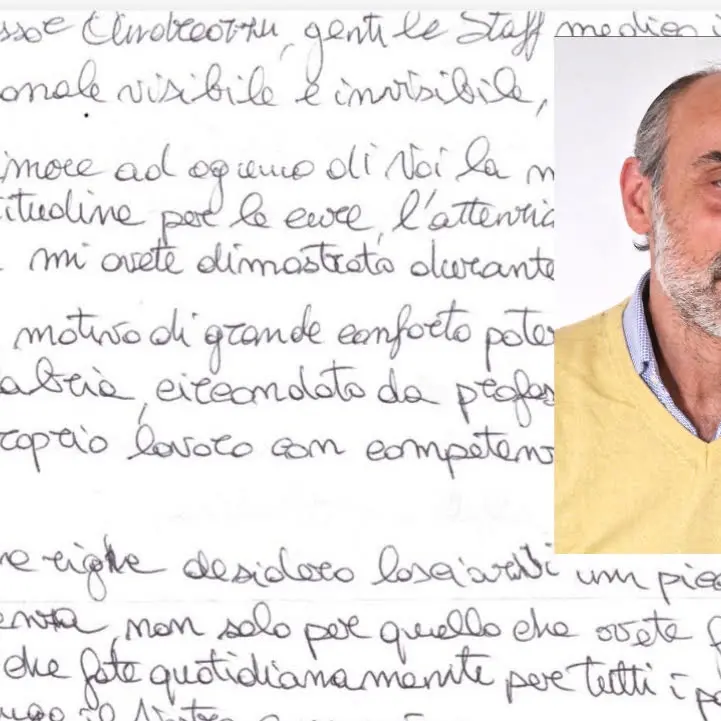 gentile Staff medico
onale visibile e invisibile,
imore ad ognuno di Voi la m
itudine per le cure, l'attenzio
mi avete dimostrato durante
motivo di grande conforto poter
abria, circondato da profes
roprio lavoro con competenz
e righe desidero lasciarvi un picc
enza, non solo per quello che avete f
che fate quotidianamente per tutti i p